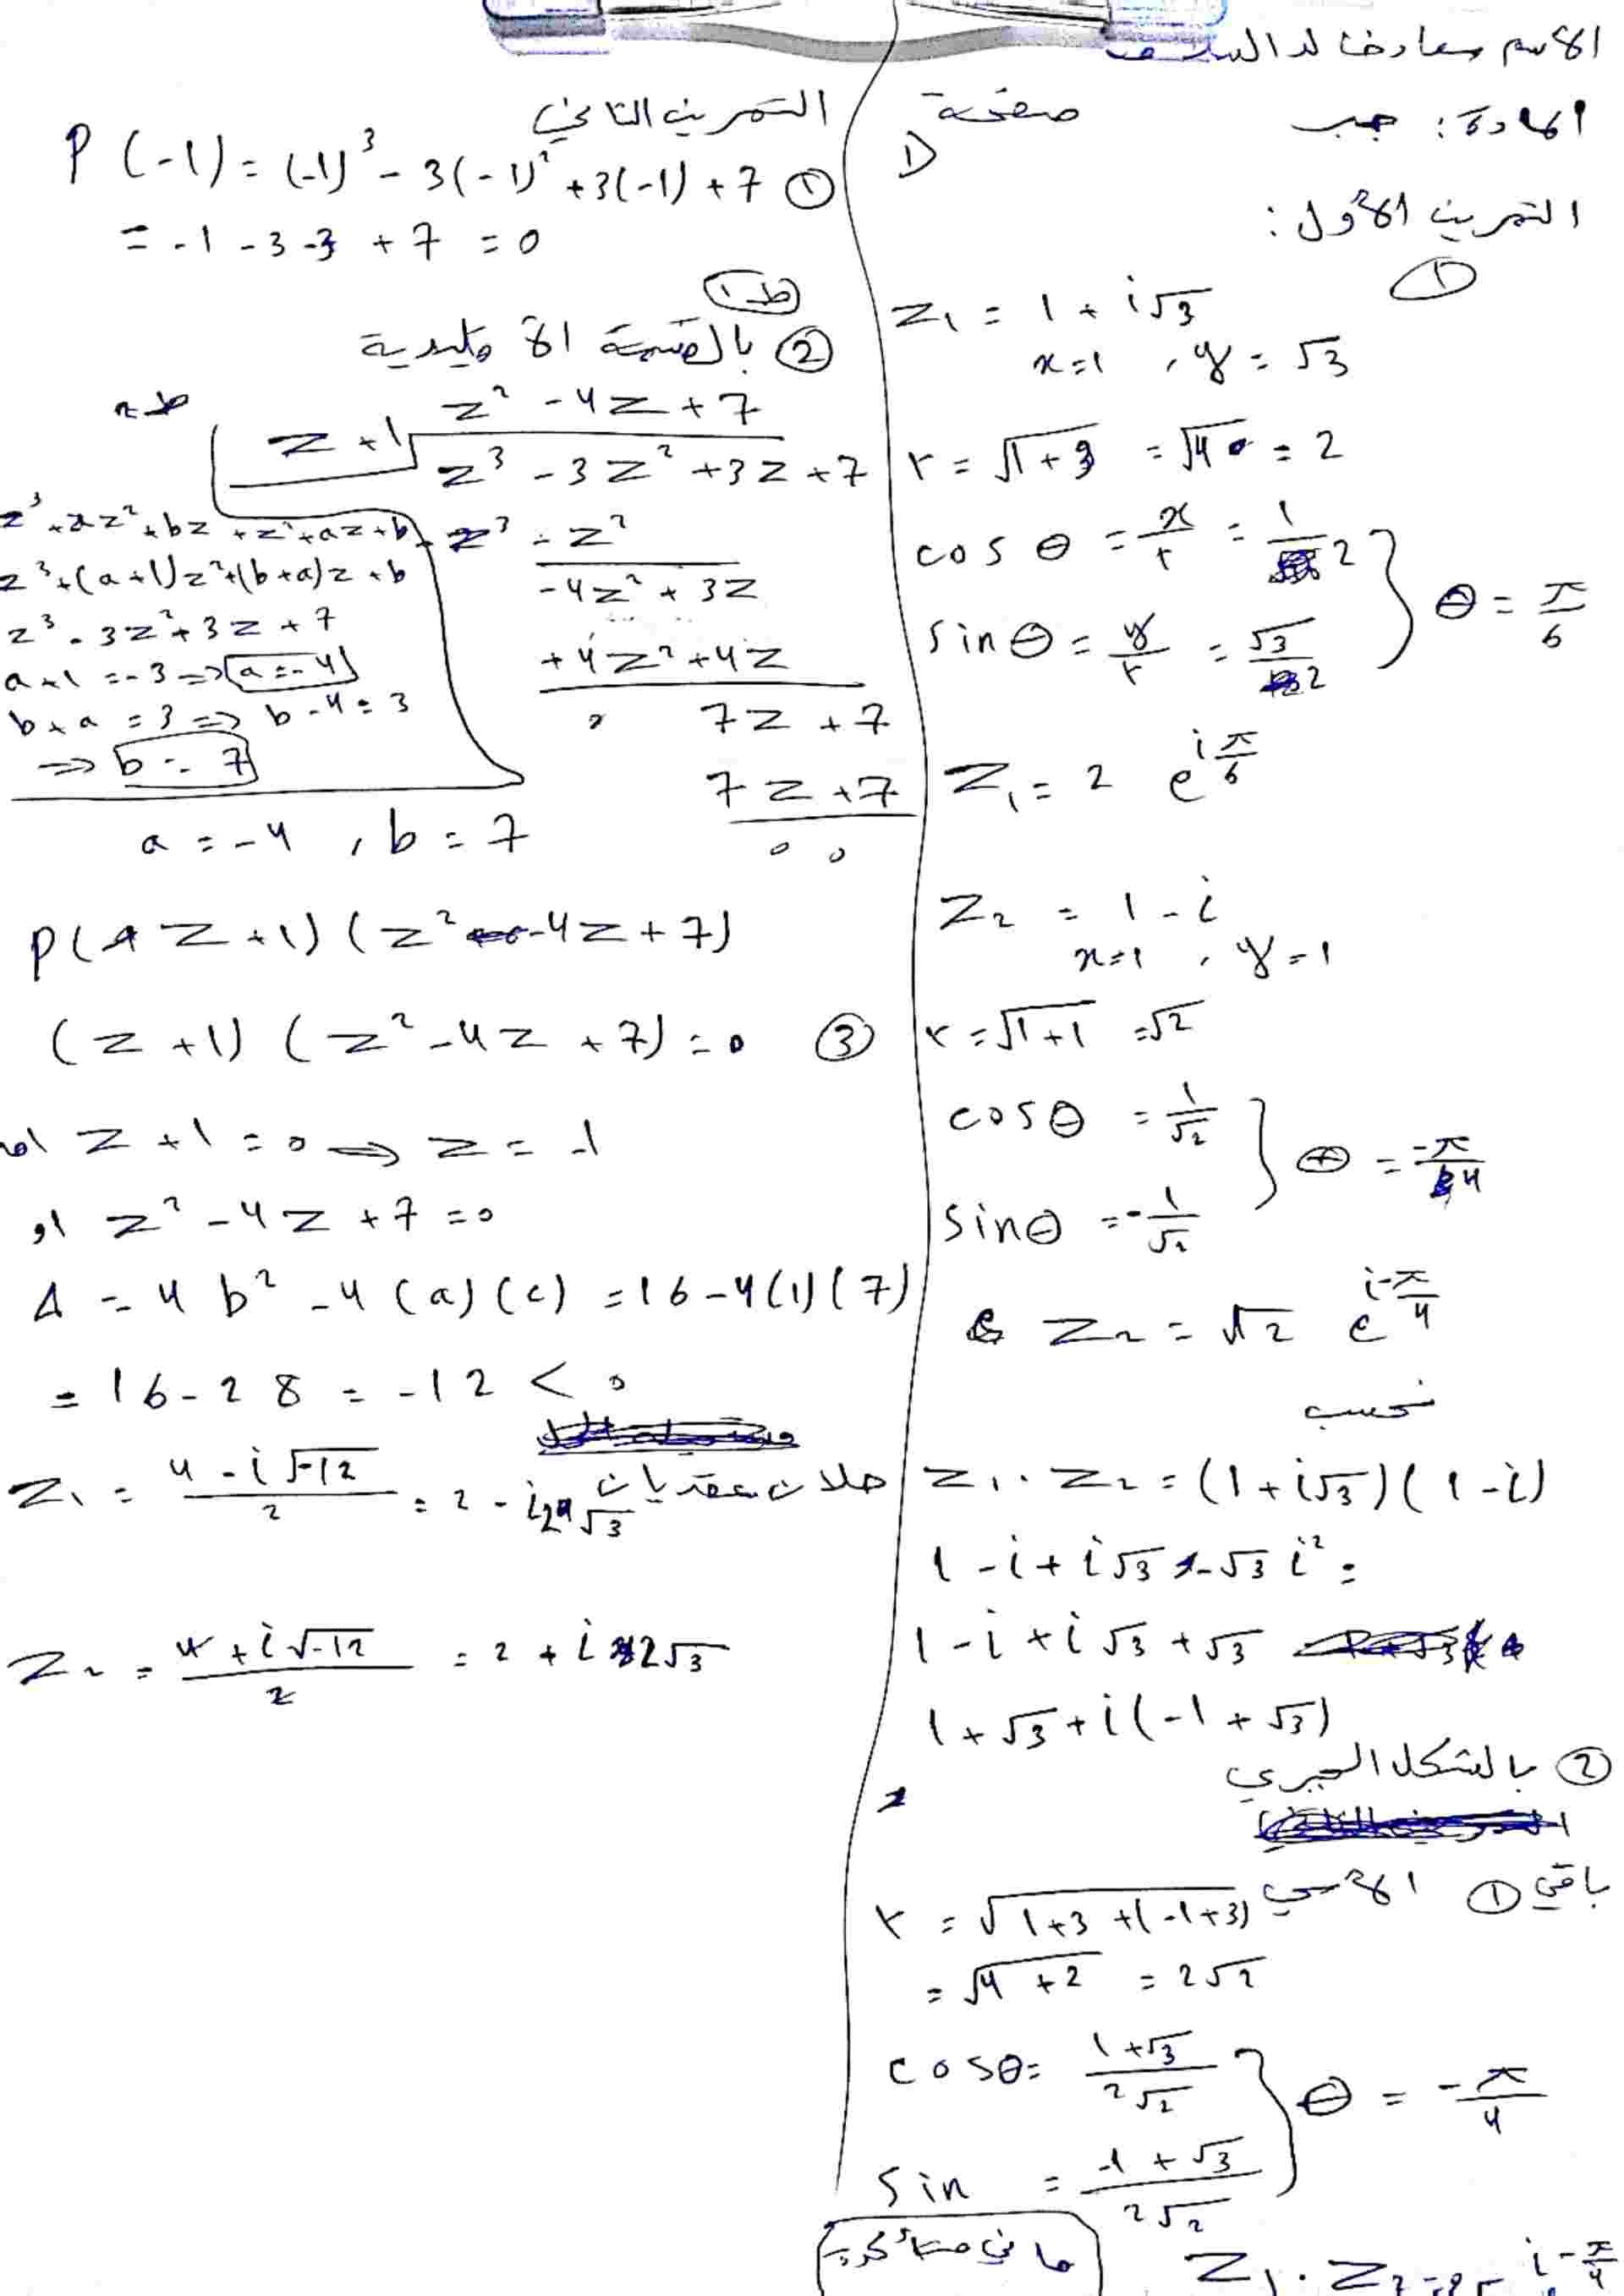 الاسم
المادة: جبر
صفحة
1
التمرين الأول:
1
z₁ = 1 + i√3
x=1 , y = √3
r = √1+3 = √4 = 2
cos θ = x/r = 1/2
sin θ = y/r = √3/2
θ = π/6
Z₁ = 2 e^{iπ/6}
Z₂ = 1 - i
x=1 , y=1
r = √1+1 = √2
cos θ = 1/√2
sin θ = -1/√2
θ = -π/4
Z₂ = √2 e^{i-π/4}
نحسب
Z₁ . Z₂ = (1 + i√3)(1 - i)
1 - i + i√3 - √3 i² =
1 - i + i√3 + √3
1 + √3 + i(-1 + √3)
② بالشكل الجبري
باقي ① الأسي
r = √1+3+(-1+3)
= √4+2 = 2√2
cos θ = 1+√3/2√2
sin = -1+√3/2√2
θ = -π/4
Z₁ . Z₂ = i-π/4
التمرين الثاني
① P(-1) = (-1)³ - 3(-1)² + 3(-1) + 7
= -1 - 3 - 3 + 7 = 0
ط١
② بالقسمة الاقليدية
z² - 4z + 7
z + 1
z³ - 3z² + 3z + 7
- z³ - z²
-4z² + 3z
+4z² + 4z
7z + 7
7z + 7
0 0
ط٢
z³ + az² + bz + z² + az + b
z³ + (a+1)z² + (b+a)z + b
z³ - 3z² + 3z + 7
a+1 = -3 ⇒ a = -4
b + a = 3 ⇒ b - 4 = 3
⇒ b = 7
a = -4 , b = 7
P(Z + 1)(Z² - 4Z + 7)
③ (Z + 1)(Z² - 4Z + 7) = 0
اما Z + 1 = 0 ⇒ Z = -1
او Z² - 4Z + 7 = 0
Δ = 4 b² - 4(a)(c) = 16 - 4(1)(7)
= 16 - 28 = -12 < 0
حلان عقديان
Z₁ = 4 - i√-12/2 = 2 - i2√3
Z₂ = 4 + i√-12/2 = 2 + i2√3